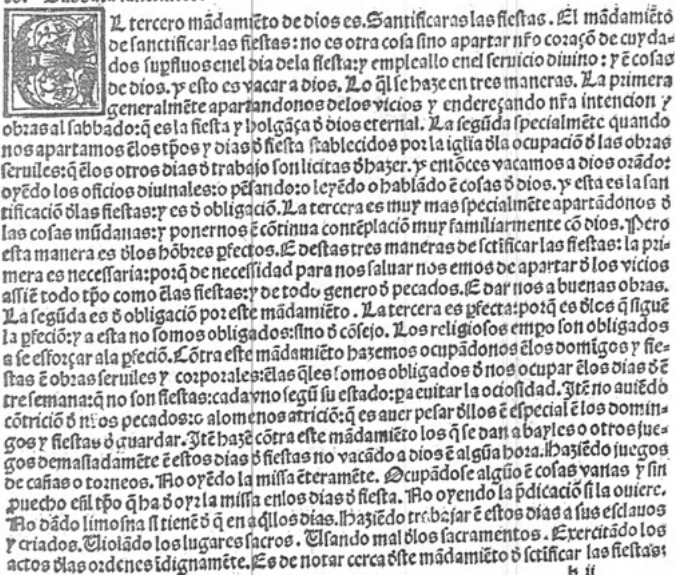 EL tercero mãdamiẽto de dios es. Santificaras las fiestas. El mãdamiẽto
de sanctificar las fiestas: no es otra cosa sino apartar nr̃o coraçõ de cuyda-
dos supfluos enel dia dela fiesta: ⁊ empleallo enel seruicio diuino: ⁊ ẽ cosas
de dios. y esto es vacar a dios. Lo q̃l se haze en tres maneras. La primera
generalmẽte apartandonos delos vicios y endereçando nr̃a intencion y
obras al sabbado: q̃ es la fiesta y holgãça d̃ dios eternal. La segũda specialmẽte quando
nos apartamos ẽlos tp̃os y dias d̃ fiesta stablecidos por la iglia d̃la ocupaciõ d̃ las obras
seruiles: q̃ ẽlos otros dias d̃ trabajo son licitas d̃ hazer. y entõces vacamos a dios orãdo:
oyẽdo los oficios diuinales: o pẽsando: o leyẽdo o hablãdo ẽ cosas d̃ dios. y esta es la san
tificaciõ d̃las fiestas: y es d̃ obligaciõ. La tercera es muy mas specialmẽte apartãdonos d̃
las cosas mũdanas: y ponernos ẽ cõtinua contẽplaciõ muy familiarmente cõ dios. Pero
esta manera es d̃los hõbres ꝑfectos. E destas tres maneras de sctificar las fiestas: la pri-
mera es necessaria: porq̃ de necessidad para nos saluar nos emos de apartar d̃ los vicios
assi ẽ todo tp̃o como ẽlas fiestas: y de todo genero d̃ pecados. E dar nos a buenas obras.
La segũda es d̃ obligaciõ por este mãdamiẽto. La tercera es ꝑfecta: porq̃ es d̃los q̃ siguẽ
la ꝑfeciõ: y a esta no somos obligados: sino d̃ cõsejo. Los religiosos empo son obligados
a se esforçar ala ꝑfeciõ. Cõtra este mãdamiẽto hazemos ocupãdonos ẽlos domĩgos y fie-
stas ẽ obras seruiles y corporales: ẽlas q̃les somos obligados d̃ nos ocupar ẽlos dias d̃ ẽ
tresemana: q̃ no son fiestas: cada vno segũ su estado: ꝑa euitar la ociosidad. Itẽ no auiẽdo
cõtriciõ d̃ nr̃os pecados: o alomenos atriciõ: q̃ es auer pesar d̃llos ẽ especial ẽlos domin-
gos y fiestas d̃ guardar. Itẽ hazẽ cõtra este mãdamiẽto los q̃ se dan a bayles o otros jue-
gos demasiadamẽte ẽ estos dias d̃ fiestas no vacãdo a dios ẽ algũa hora. Haziẽdo juegos
de cañas o torneos. No oyẽdo la missa ẽteramẽte. Ocupãdose algũo ẽ cosas vanas y sin
ꝓuecho eñl tp̃o q̃ ha d̃ oyr la missa enlos dias d̃ fiesta. No oyendo la p̃dicaciõ si la ouiere.
No dãdo limosna si tienẽ d̃ q̃ en aq̃llos dias. Haziẽdo trabajar ẽ estos dias a sus esclauos
y criados. Uiolãdo los lugares sacros. Usando mal d̃los sacramentos. Exercitãdo los
actos d̃las ordenes ĩdignamẽte. Es de notar cerca d̃ste mãdamiẽto d̃ sctificar las fiestas:
h ij